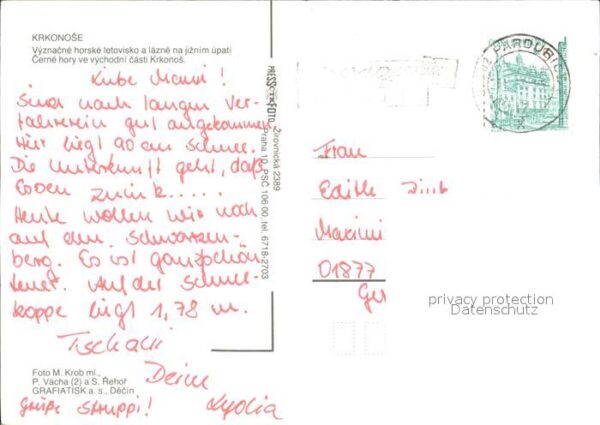 KRKONOŠE
Význačné horské letovisko a lázně na jižním úpatí
Černé hory ve východní části Krkonoš.
Liebe Mami!
Sind nach langem Ver-
fahrerein gut angekommen.
Hier liegt 90 cm Schnee.
Die Unterkunft geht, daß
Essen zurück.....
Heute wollen wir noch
auf den Schwarzen-
berg. Es ist ganz schön
teuer. Auf der Schnee-
koppe liegt 1,78 m.
Tschaui
Deine
Lydia
Grüße Struppi!
Foto M. Krob ml.,
P. Vácha (2) a S. Řehoř
GRAFIATISK a. s., Děčín
PRESSFOTO Žirovnická 2389
Praha 10, PSČ 106 00, tel. 6718-2703
PARDUBIC
Frau
Edith
01877
Ger
privacy protection
Datenschutz